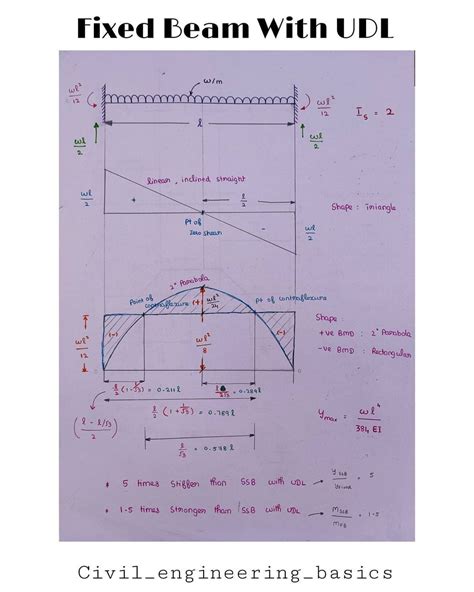 Fixed Beam With UDL
w/m
wl²/12
wl²/12
I_s = 2
l
wl/2
wl/2
linear, inclined straight
l/2
wl/2
+
-
wl/2
Shape : triangle
Pt of
Zero shear
2° Parabola
Point of
contraflexure
(+) wl²/24
Pt of contraflexure
(-)
(-)
wl²/12
wl²/8
Shape
+ve BMD : 2° Parabola
-ve BMD : Rectangular
l/2 (1-1/√3) = 0.211 l
l/2√3 = 0.289 l
l/2 (1+1/√3) = 0.789 l
(l - l/√3)/2
y_max = wl⁴/384 EI
l/√3 = 0.578 l
* 5 times stiffer than SSB with UDL → = 5
* 1.5 times stronger than SSB with UDL → M_SSB/M_FB = 1.5
Civil_engineering_basics